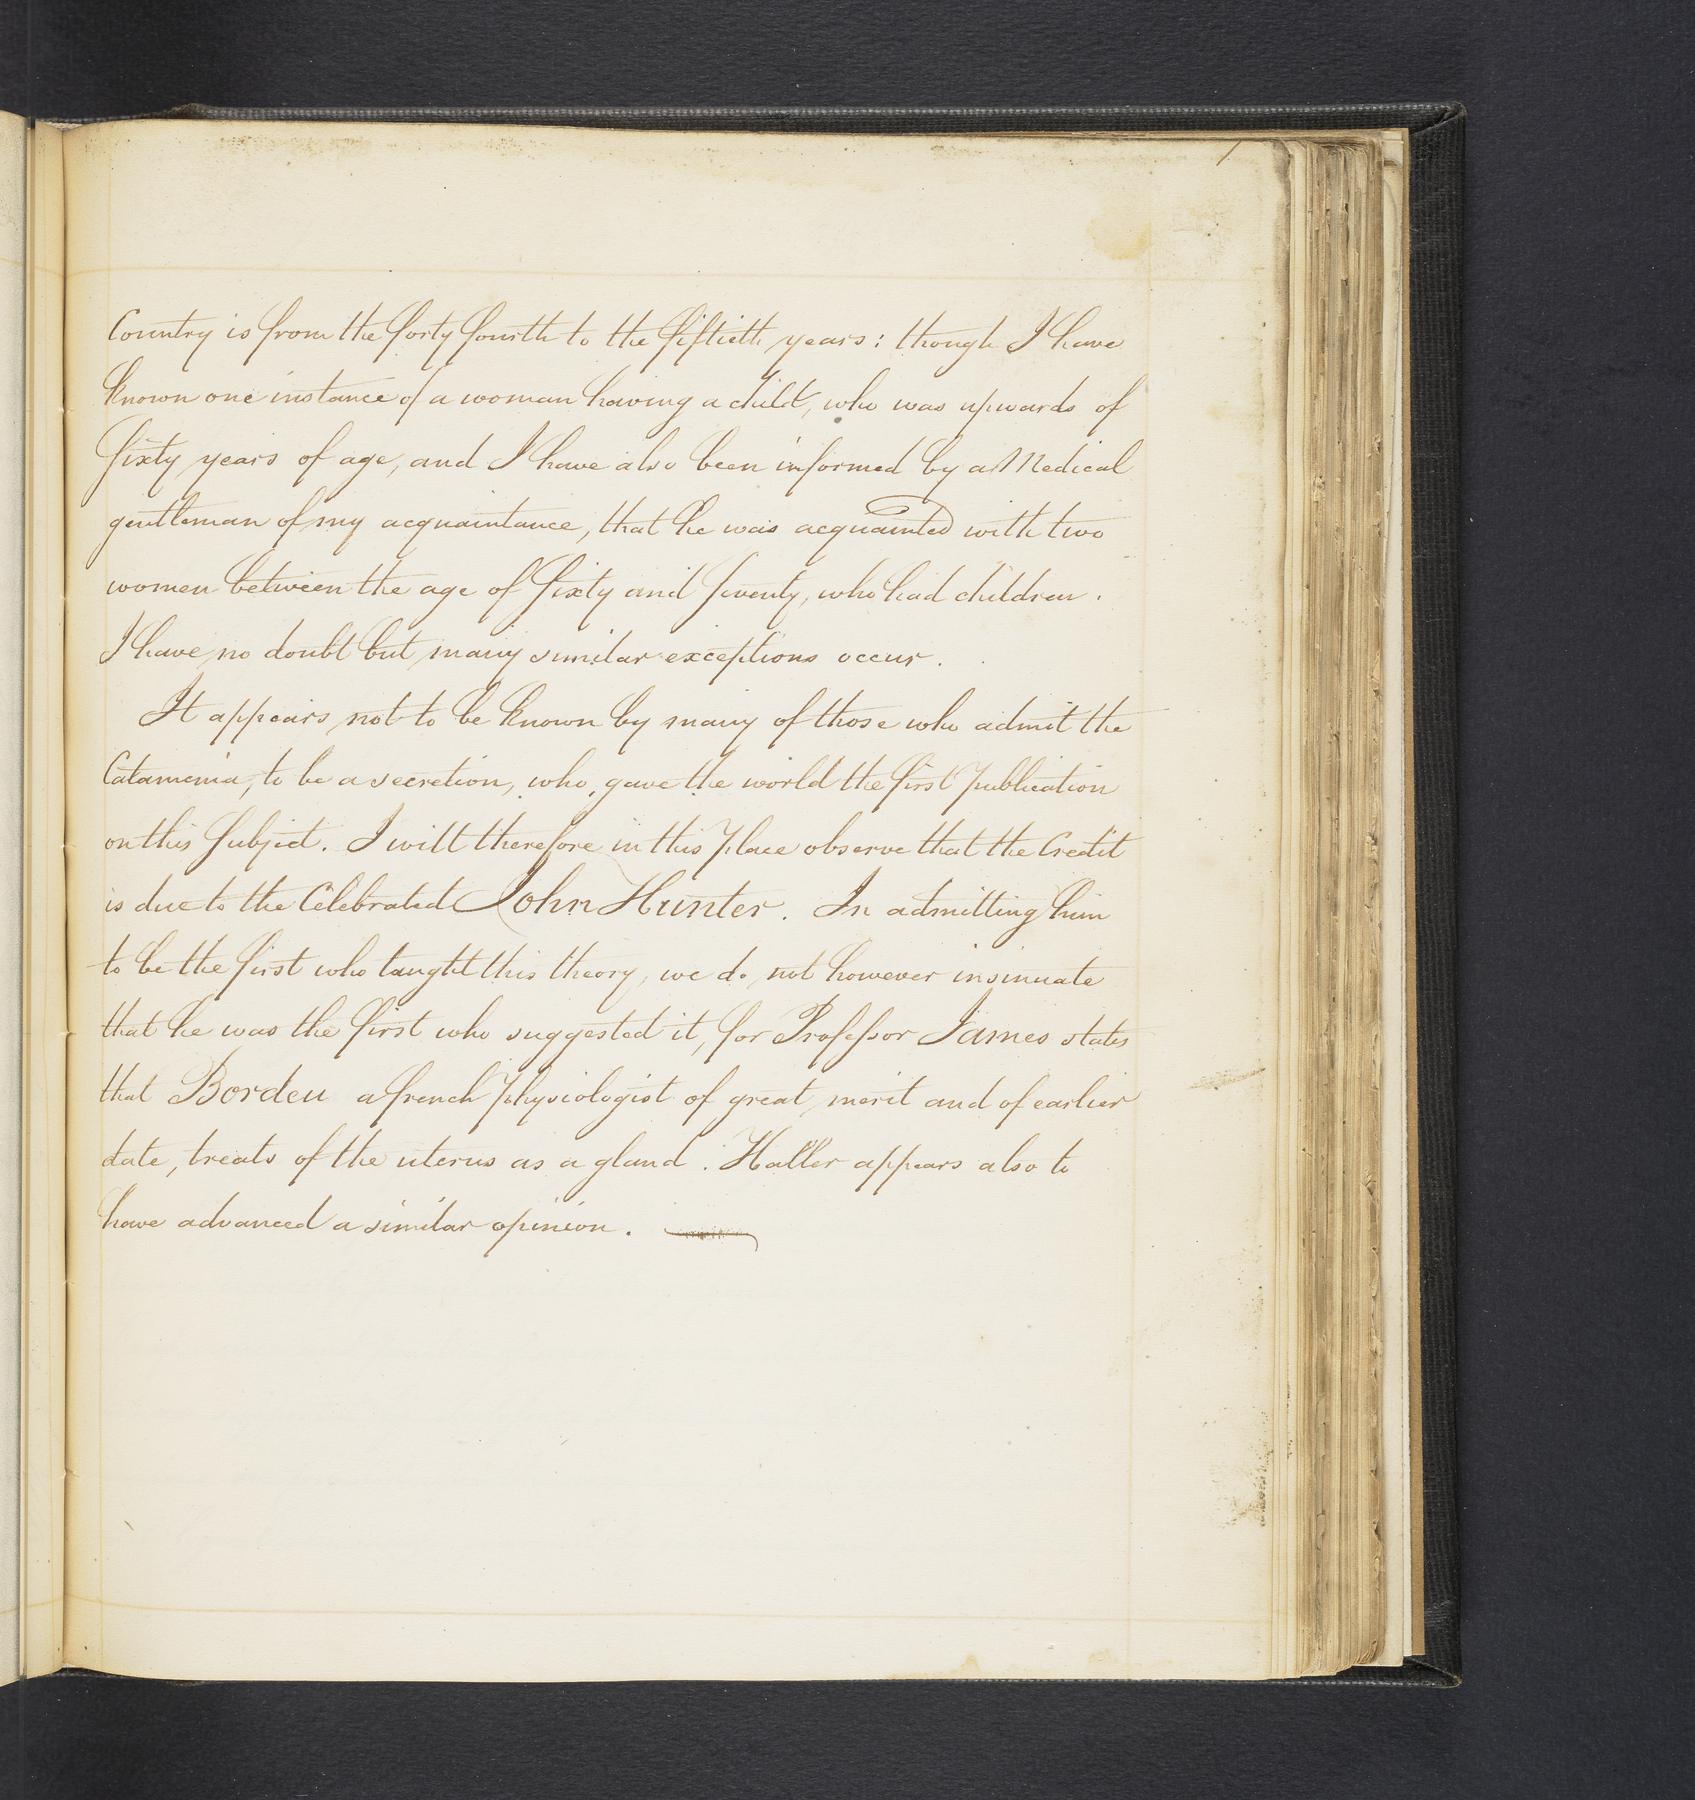 Country is from the forty fourth to the fiftieth years: though I have
known one instance of a woman having a child, who was upwards of
Sixty years of age, and I have also been informed by a Medical
gentleman of my acquaintance, that he was acquainted with two
women between the age of Sixty and Seventy, who had children.
I have no doubt but many similar exceptions occur.
It appears not to be known by many of those who admit the
Catamenia, to be a secretion, who, gave the world the first publication
on this Subject. I will therefore in this place observe that the Credit
is due to the Celebrated John Hunter. In admitting him
to be the first who taught this theory, we do not however insinuate
that he was the first who suggested it, for Professor James states
that Bordeu a french physiologist of great merit and of earlier
date, treats of the uterus as a gland. Haller appears also to
have advanced a similar opinion.